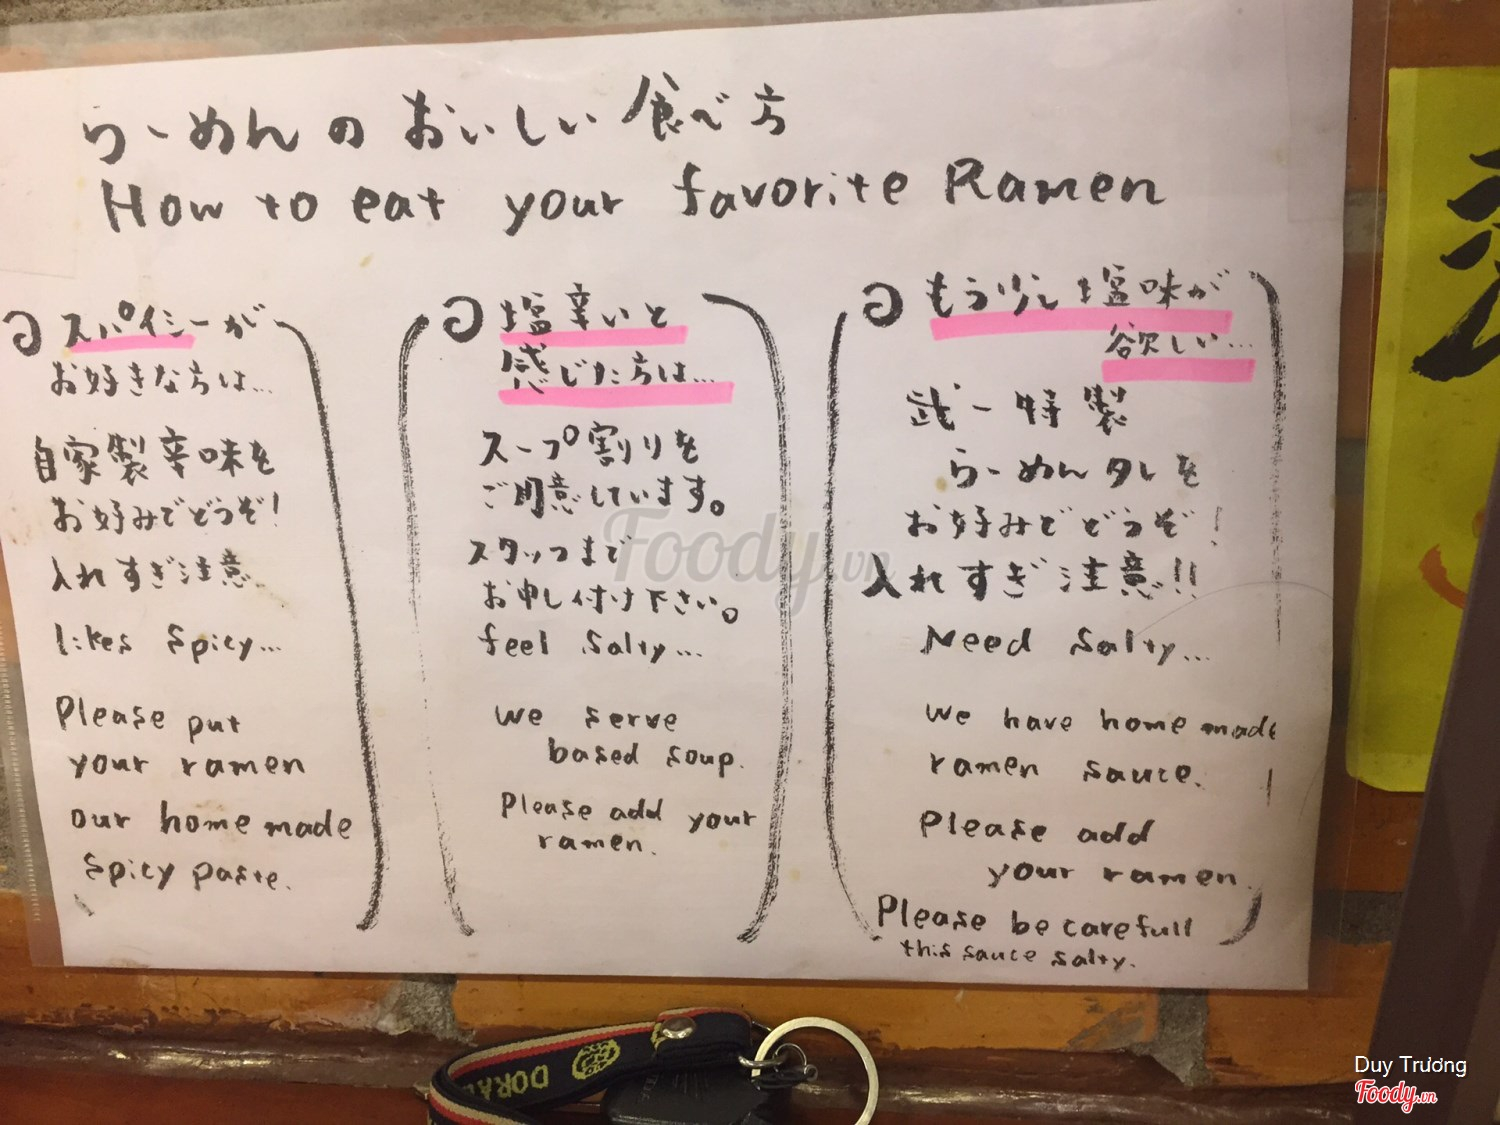 らーめんのおいしい食べ方
How to eat your favorite Ramen
スパイシーが
お好きな方は…
自家製辛味を
お好みでどうぞ!
入れすぎ注意
likes spicy...
Please put
your ramen
our home made
spicy paste.
塩辛いと
感じた方は…
スープ割りを
ご用意しています。
スタッフまで
お申し付け下さい。
feel salty...
we serve
based soup.
Please add your
ramen.
もう少し塩味が
欲しい…
武一特製
らーめんタレを
お好みでどうぞ!
入れすぎ注意!!
Need salty...
we have home made
ramen sauce.
Please add
your ramen.
Please be carefull
this sauce salty.
Foody.vn
DORA
Duy Trương
Foody.vn